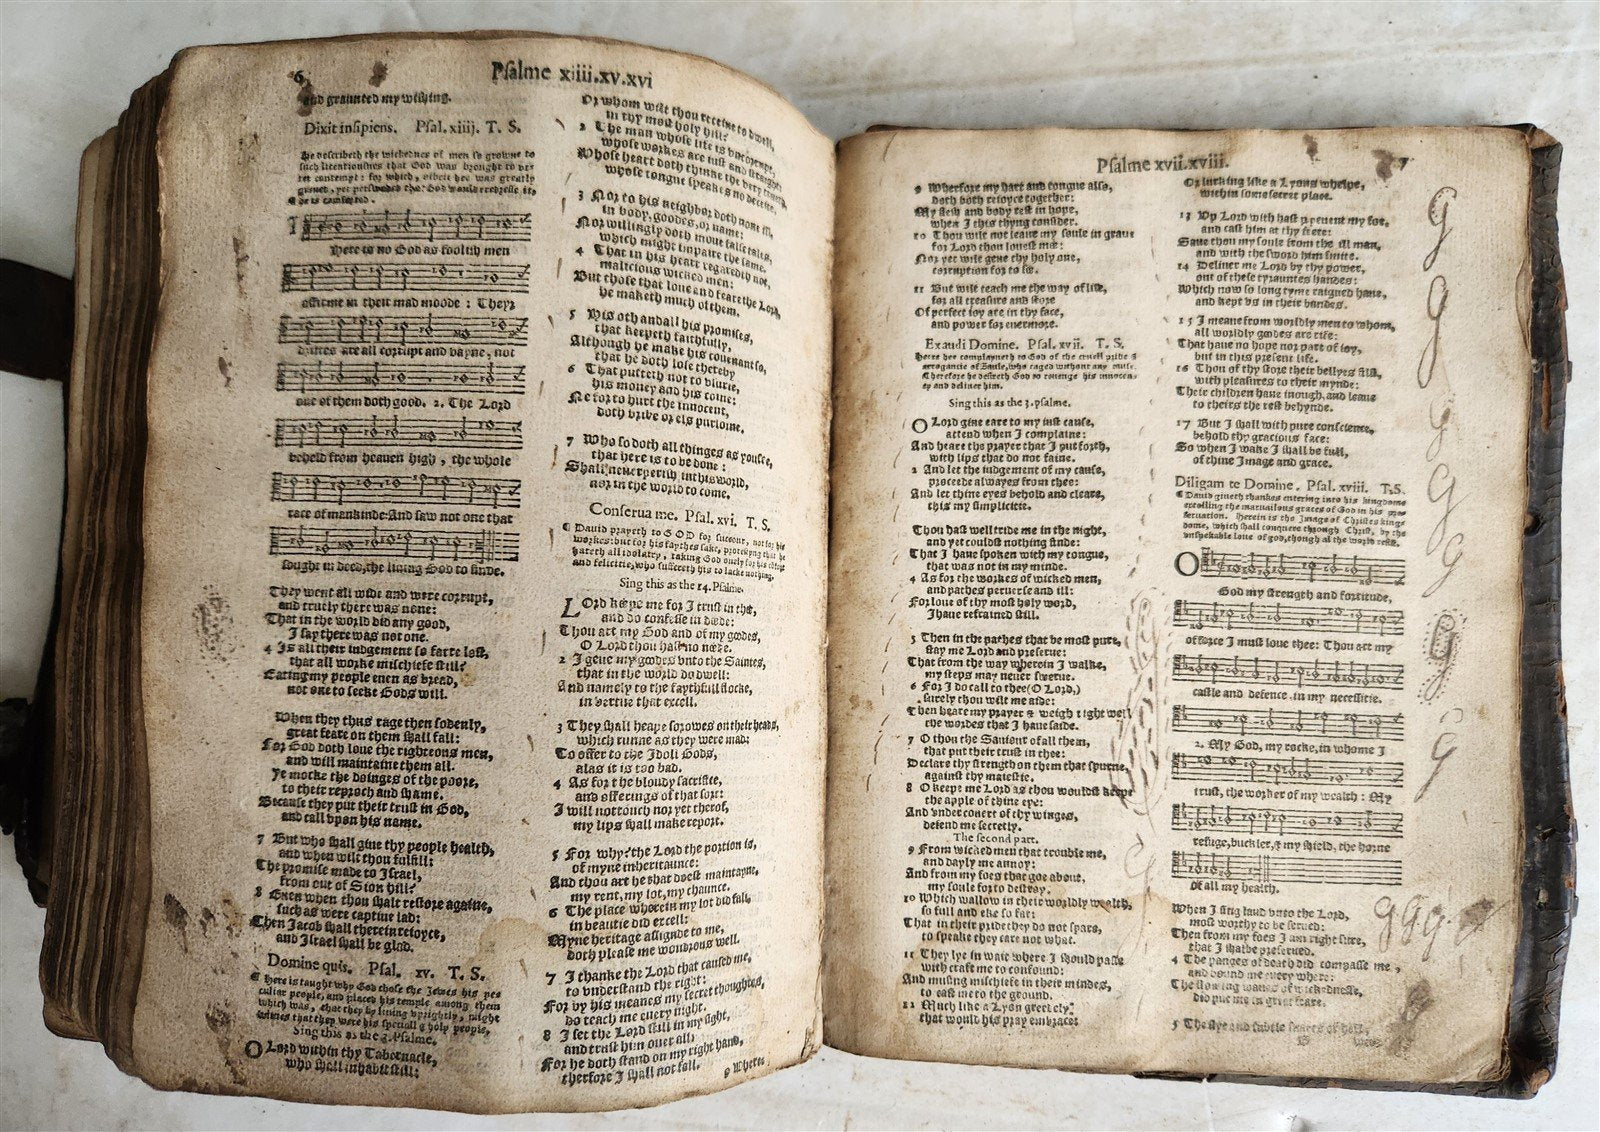 6
Psalme xiiii.xv.xvi
and graunted my wishing.
Dixit insipiens. Psal. xiiij. T. S.
He describeth the wickednes of men so growne to
such licentiousnes that God was brought to vt-
ter contempt: for which, albeit hee was greatly
grieued, yet perswaded that God would redresse it,
he is comforted.
Here is no God as foolish men
affirme in their mad moode: Theyr
drifts are all corrupt and vayne, not
one of them doth good. 2. The Lord
beheld from heauen high, the whole
race of mankinde: And saw not one that
sought in deed, the liuing God to finde.
They went all wide and were corrupt,
and truely there was none:
That in the world did any good,
I say there was not one.
4 Is all their iudgement so farre lost,
that all worke mischiefe still?
Eating my people euen as bread,
not one to seeke Gods will.
When they thus rage then sodenly,
great feare on them shall fall:
For God doth loue the righteous men,
and will maintaine them all.
Ye mocke the doinges of the poore,
to their reproch and shame.
Because they put their trust in God,
and call vpon his name.
7 But who shall giue thy people health,
and when wilt thou fulfill:
The promise made to Israel,
from out of Sion hill?
8 Euen when thou shalt restore againe,
such as were captiue lad:
Then Jacob shall therein reioyce,
and Israel shall be glad.
Domine quis. Psal. xv. T. S.
¶ Here is taught why God chose the Jewes his pe-
culiar people, and placed his temple among them
which was, that they by liuing vprightly, might
witnes that they were his speciall & holy people,
Sing this as the 3. Psalme.
O Lord within thy Tabernacle,
who shall inhabit still:
Or whom wilt thou receiue to dwell,
in thy most holy hill?
2 The man whose life is vncorrupt,
whose workes are iust and straight:
Whose heart doth thinke the very truth,
whose tongue speakes no deceite.
3 Nor to his neighbor doth none ill,
in body, goodes, or name:
Nor willingly doth moue false tales,
which might impaire the same.
4 That in his heart regardeth not,
malicious wicked men:
But those that loue and feare the Lord,
he maketh much of them.
5 His oth and all his promises,
that keepeth faithfully,
Although he make his couenant so,
that he doth lose thereby
6 That putteth not to vsurie,
his money and his coine:
Ne for to hurt the innocent,
doth bribe or els purloine.
7 Who so doth all thinges as you see,
that here is to be done:
Shall neuer perish in this world,
nor in the world to come.
Conserua me. Psal. xvi. T. S.
¶ Dauid prayeth to GOD for succour, not for his
workes: but for his faythes sake, protesting that he
hateth all idolatry, taking God onely for his comfort
and felicitie, who suffereth his to lacke nothing.
Sing this as the 14. Psalme.
LOrd keepe me for I trust in thee,
and do confesse in deede:
Thou art my God and of my goodes,
O Lord thou hast no neede.
2 I geue my goodes vnto the Saintes,
that in the world do dwell:
And namely to the faythfull flocke,
in vertue that excell.
3 They shall heape sorowes on their heads,
which runne as they were mad:
To offer to the Idoll Gods,
alas it is too bad.
4 As for the bloudy sacrifise,
and offerings of that sort:
I will not touch nor yet therof,
my lips shall make report.
5 For why? the Lord the portion is,
of myne inheritaunce:
And thou art he that doest maintayne,
my rent, my lot, my chaunce.
6 The place wherein my lot did fall,
in beautie did excell:
Myne heritage assignde to me,
doth please me wondrous well.
7 I thanke the Lord that caused me,
to vnderstand the right:
For by his meanes my secret thoughtes,
do teach me euery night.
8 I set the Lord still in my sight,
and trust him ouer all:
For he doth stand on my right hand,
therfore I shall not fall.
9 Wherfore
Psalme xvii.xviii.
7
9 Wherfore my hart and tongue also,
doth both reioyce together:
My flesh and body rest in hope,
when I this thyng consider.
10 Thou wilt not leaue my soule in graue
for Lord thou louest me:
Nor yet wilt geue thy holy one,
corruption for to see.
11 But wilt teach me the way of life,
for all treasure and store
Of perfect ioy are in thy face,
and power for euermore.
Exaudi Domine. Psal. xvii. T. S.
Heere hee complayneth to God of the cruell pride &
arrogancie of Saule, who raged without any cause.
Therefore he desireth God to reuenge his innocen-
cy and deliuer him.
Sing this as the 3. psalme.
O Lord giue eare to my iust cause,
attend when I complaine:
And heare the prayer that I put forth,
with lips that do not faine.
2 And let the iudgement of my cause,
proceede alwayes from thee:
And let thine eyes behold and cleare,
this my simplicitie.
Thou hast well tride me in the night,
and yet couldst nothing finde:
That I haue spoken with my tongue,
that was not in my minde.
4 As for the workes of wicked men,
and pathes peruerse and ill:
For loue of thy most holy word,
I haue refrained still.
5 Then in the pathes that be most pure,
stay me Lord and preserue:
That from the way wherein I walke,
my steps may neuer swerue.
6 For I do call to thee (O Lord,)
surely thou wilt me aide:
Then heare my prayer & weigh right well
the wordes that I haue saide.
7 O thou the Sauiour of all them,
that put their trust in thee:
Declare thy strength on them that spurne,
against thy maiestie.
8 O keepe me Lord as thou wouldst keepe
the apple of thine eye:
And vnder couert of thy winges,
defend me secretly.
The second part.
9 From wicked men that trouble me,
and dayly me annoy:
And from my foes that goe about,
my soule for to destroy.
10 Which wallow in their worldly wealth,
so full and eke so fat:
That in their pride they do not spare,
to speake they care not what.
11 They lye in waite where I should passe
with craft me to confound:
And musing mischiefe in their mindes,
to cast me to the ground.
12 Much like a Lyon greetely,
that would his pray embrace:
Or lurking like a Lyons whelpe,
within some secret place.
13 Vp Lord with hast preuent my foe,
and cast him at thy feete:
Saue thou my soule from the ill man,
and with the sword him smite.
14 Deliuer me Lord by thy power,
out of these tyrauntes handes:
Which now so long tyme raigned haue,
and kept vs in their bandes.
15 I meane from worldly men to whom,
all worldly goodes are rife:
That haue no hope nor part of ioy,
but in this present life.
16 Thou of thy store their bellyes filst,
with pleasures to their mynde:
Their children haue inough, and leaue
to theirs the rest behynde.
17 But I shall with pure conscience,
behold thy gracious face:
So when I wake I shall be full,
of thine Image and grace.
Diligam te Domine. Psal. xviii. T. S.
¶ Dauid giueth thankes entering into his kingdome
extolling the maruailous graces of God in his pre-
seruation. Herein is the Image of Christes king-
dome, which shall conquere through Christ, by the
vnspekable loue of god, though al the world resist.
O God my strength and fortitude,
of force I must loue thee: Thou art my
castle and defence in my necessitie.
2. My God, my rocke, in whome I
trust, the worker of my wealth: My
refuge, buckler, & my shield, the horne
of all my health.
When I sing laud vnto the Lord,
most worthy to be serued:
Then from my foes I am right sure,
that I shalbe preserued.
4 The panges of death did compasse me,
and bound me euery where:
The flowing waues of wickednesse,
did put me in great feare.
5 The slye and subtle snares of hell,
g
g
g
g
g
g
g g g